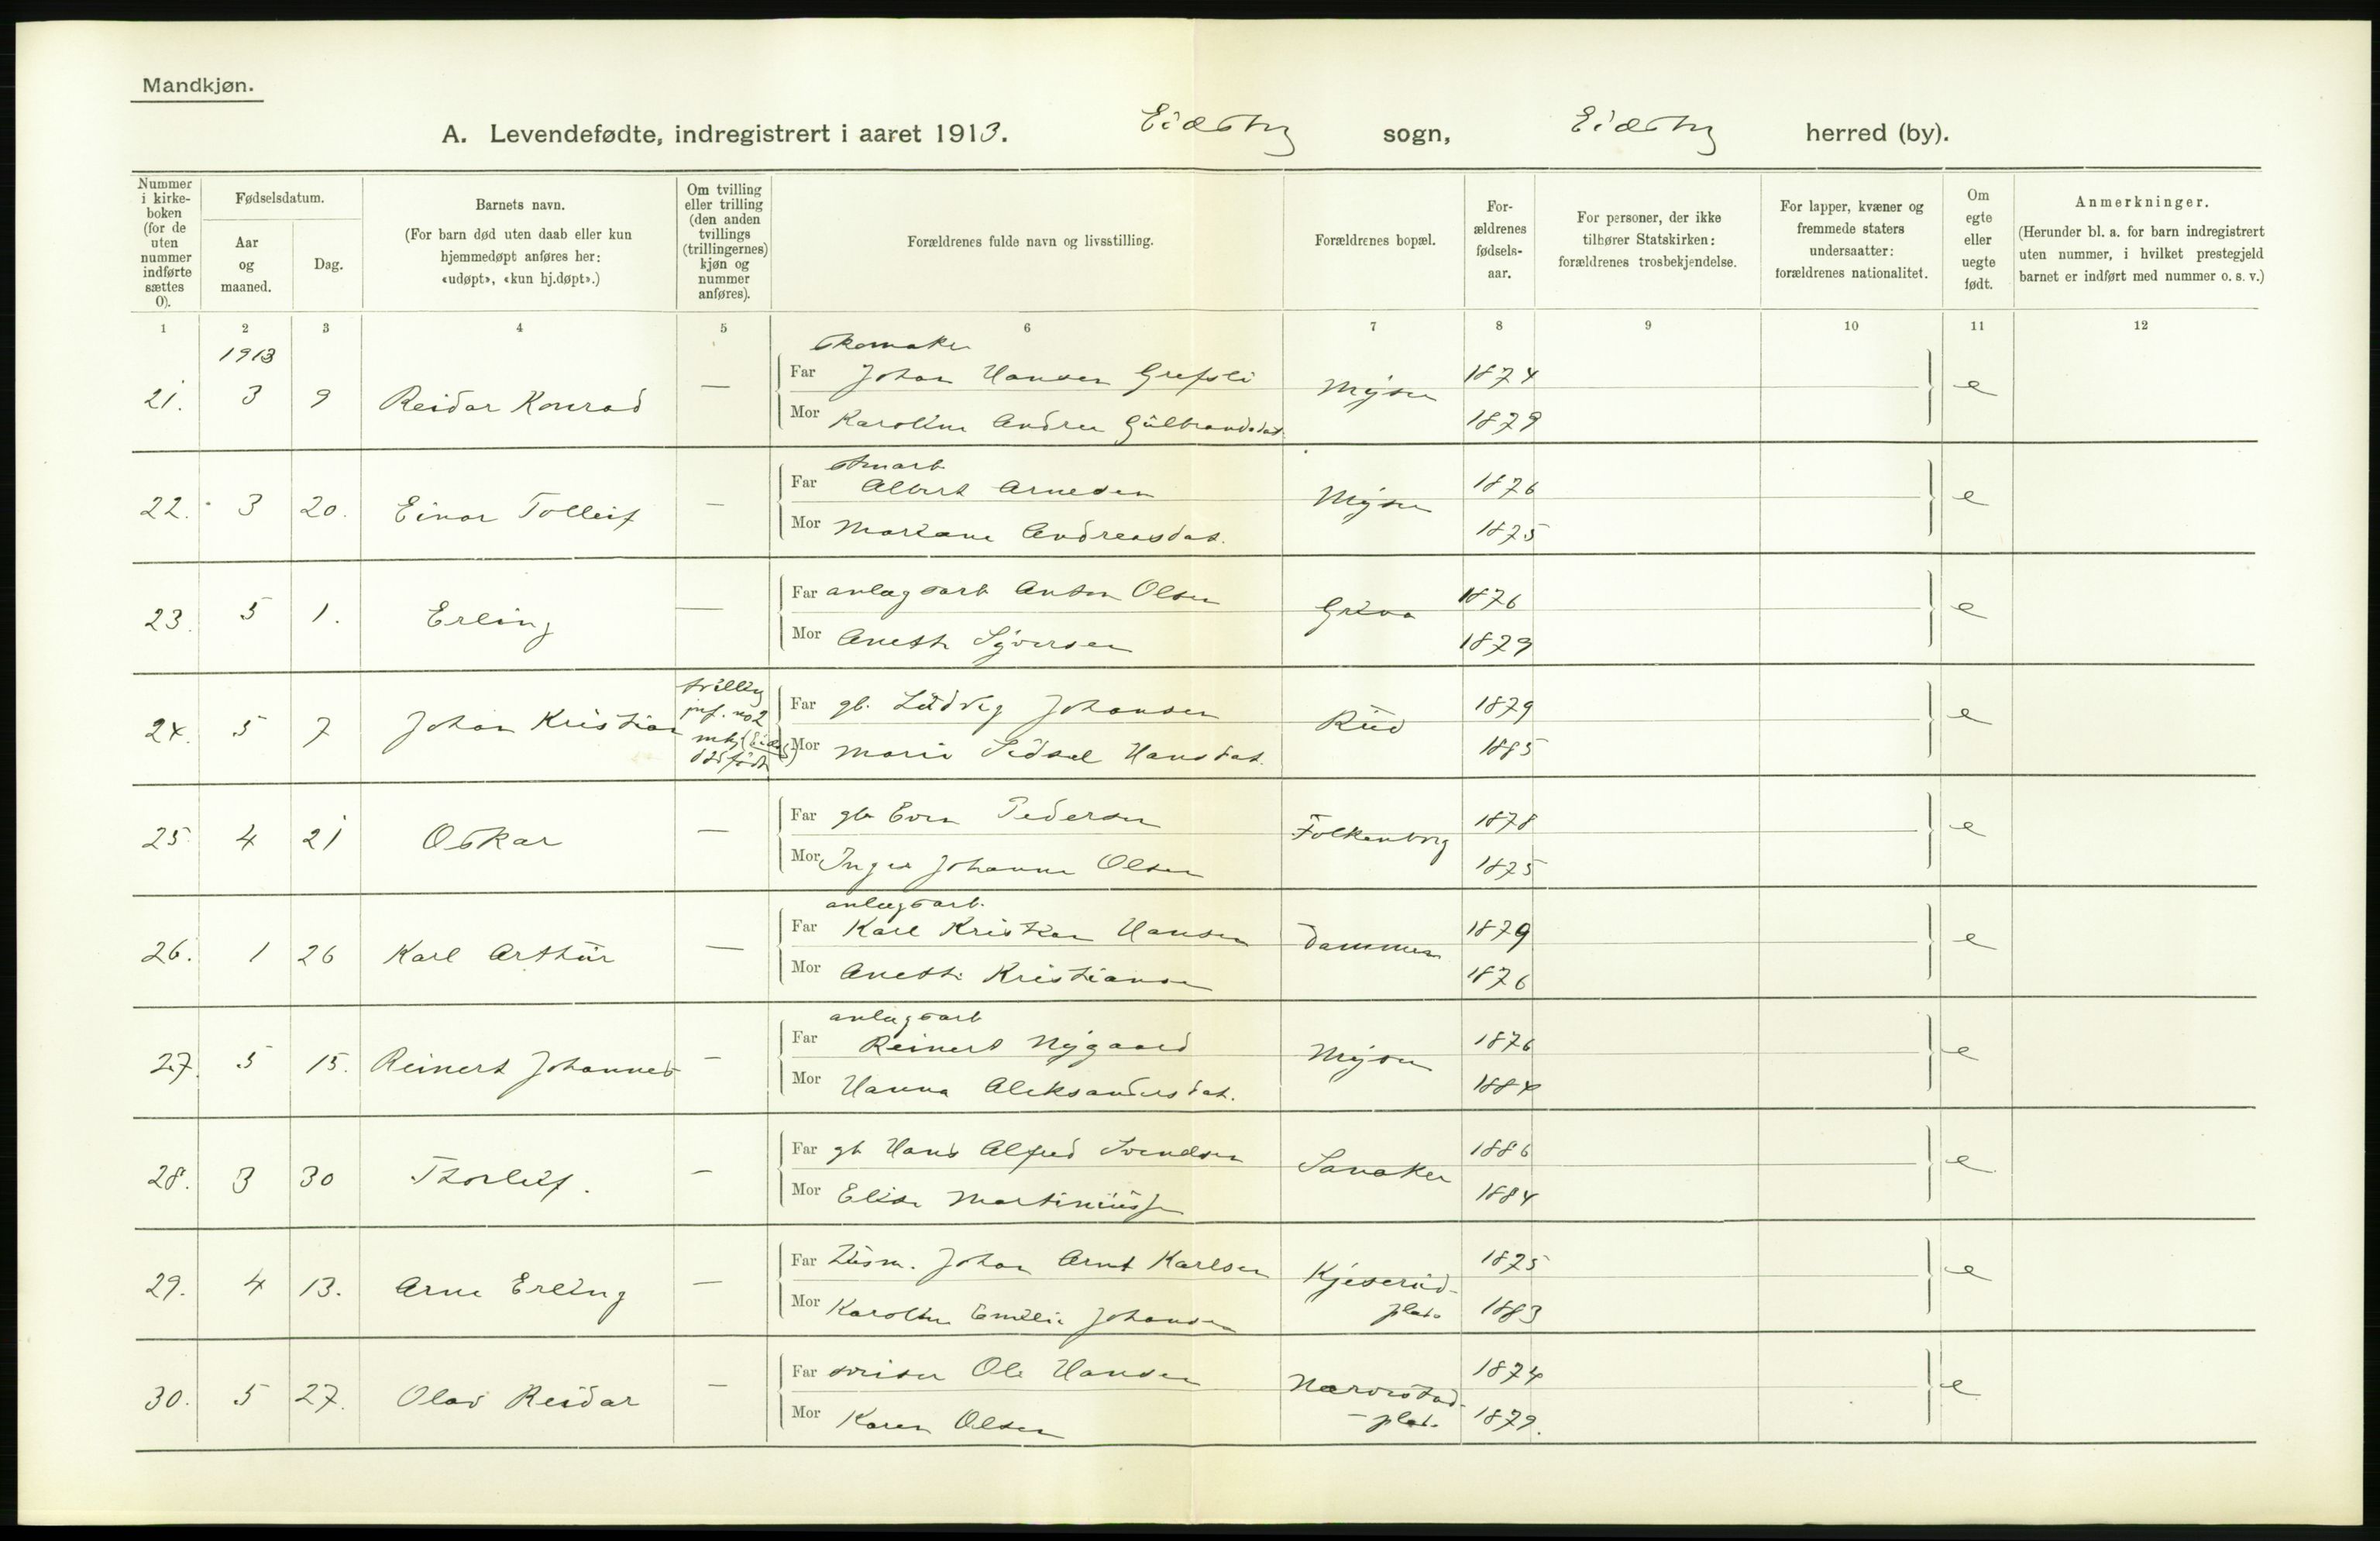 Mandkjøn.
A. Levendefødte, indregistrert i aaret 1913. Eidsbg sogn, Eidsbg herred (by).
Nummer i kirkeboken (for de uten nummer indførte sættes 0).
Fødselsdatum.
Aar og maaned.
Dag.
Barnets navn.
(For barn død uten daab eller kun hjemmedøpt anføres her: «udøpt», «kun hj.døpt».)
Om tvilling eller trilling (den anden tvillings (trillingernes) kjøn og nummer anføres).
Forældrenes fulde navn og livsstilling.
Forældrenes bopæl.
Forældrenes fødselsaar.
For personer, der ikke tilhører Statskirken: forældrenes trosbekjendelse.
For lapper, kvæner og fremmede staters undersaatter: forældrenes nationalitet.
Om egte eller uegte født.
Anmerkninger.
(Herunder bl. a. for barn indregistrert uten nummer, i hvilket prestegjeld barnet er indført med nummer o. s. v.)
1 2 3 4 5 6 7 8 9 10 11 12
1913
21. 3 9 Reidar Konrad — Skomaker
Far Johan Hansen Grefsli Mysen 1874 e
Mor Karoline Andrea Gulbrandsdat. 1879
22. 3 20. Einar Tolleif — Stmarb
Far Albert Arnesen Mysen 1876 e
Mor Mariane Andreasdat. 1875
23. 5 1. Erling — Far anlægsarb Anton Olsen Greva 1876 e
Mor Anethe Syversen 1879
24. 5 7 Johan Kristian tvilling jnf. no 2 mkj dødfødte
Far gb. Ludvig Johansen Rud 1879 e
Mor Marie Sidsel Hansdat. 1885
25 4 21 Oskar — Far gb Even Pedersen Folkenborg 1878 e
Mor Inger Johanne Olsen 1875
26. 1 26 Karl Arthur — anlægsarb.
Far Karl Kristian Hansen Dammen 1879 e
Mor Anethe Kristiansen 1876
27. 5 15. Reinert Johannes — anlægsarb
Far Reinert Nygaard Mysen 1876 e
Mor Hanna Aleksandersdat. 1884
28. 3 30 Thorleif. — Far gb Hans Alfred Svendsen Sanaker 1886 e
Mor Elise Martiniussen 1884
29. 4 13. Arne Erling — Far Husm. Johan Arnt Karlsen Kjeserud- 1875 e
Mor Karoline Emilie Johansen plds. 1883
30. 5 27. Olav Reidar — Far sviser Ole Hansen Narvestad- 1874 e
Mor Karen Olsen — plds. 1879.